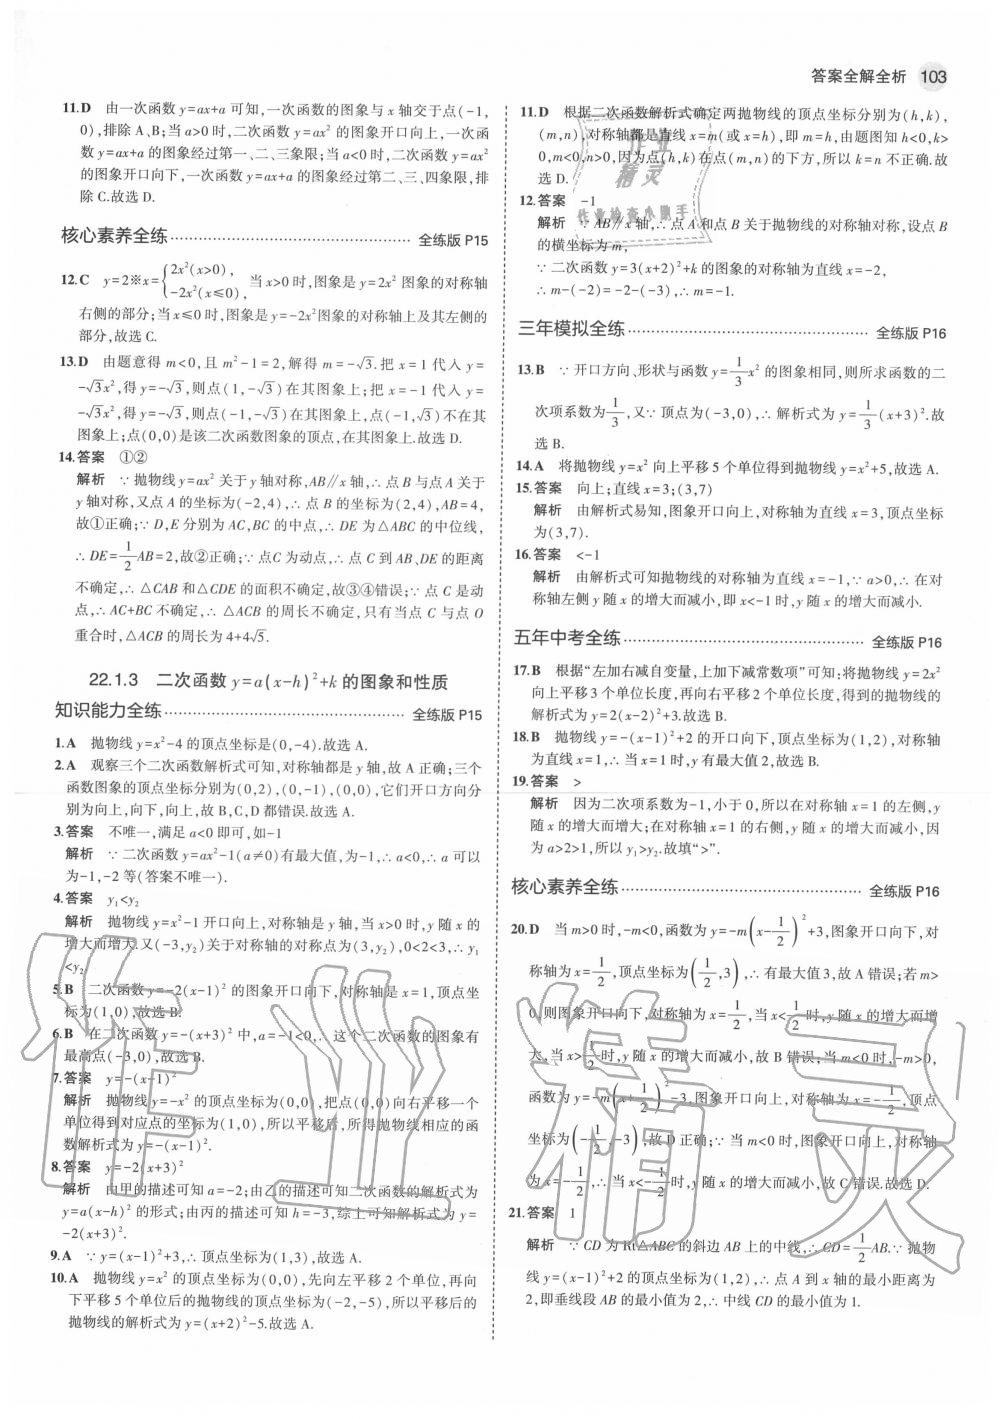 答案全解全析 103
11.D 由一次函数y=ax+a可知,一次函数的图象与x轴交于点(-1,
0),排除A、B;当a>0时,二次函数y=ax²的图象开口向上,一次函
数y=ax+a的图象经过第一、二、三象限;当a<0时,二次函数y=ax²
的图象开口向下,一次函数y=ax+a的图象经过第二、三、四象限,排
除C.故选D.
核心素养全练 全练版P15
12.C y=2※x={2x²(x>0), -2x²(x≤0), 当x>0时,图象是y=2x²图象的对称轴
右侧的部分;当x≤0时,图象是y=-2x²图象的对称轴上及其左侧的
部分,故选C.
13.D 由题意得m<0,且m²-1=2,解得m=-√3.把x=1代入y=
-√3x²,得y=-√3,则点(1,-√3)在其图象上;把x=-1代入y=
-√3x²,得y=-√3,则点(-1,-√3)在其图象上,点(-1,√3)不在其
图象上;点(0,0)是该二次函数图象的顶点,在其图象上.故选D.
14.答案 ①②
解析 ∵抛物线y=ax²关于y轴对称,AB∥x轴,∴点B与点A关于
y轴对称,又点A的坐标为(-2,4),∴点B的坐标为(2,4),AB=4,
故①正确;∵D,E分别为AC,BC的中点,∴DE为△ABC的中位线,
∴DE=1/2AB=2,故②正确;∵点C为动点,∴点C到AB、DE的距离
不确定,∴△CAB和△CDE的面积不确定,故③④错误;∵点C是动
点,∴AC+BC不确定,∴△ACB的周长不确定,只有当点C与点O
重合时,△ACB的周长为4+4√5.
22.1.3 二次函数y=a(x-h)²+k的图象和性质
知识能力全练 全练版P15
1.A 抛物线y=x²-4的顶点坐标是(0,-4).故选A.
2.A 观察三个二次函数解析式可知,对称轴都是y轴,故A正确;三个
函数图象的顶点坐标分别为(0,2),(0,-1),(0,0),它们开口方向分
别为向上,向下,向上,故B,C,D都错误.故选A.
3.答案 不唯一,满足a<0即可,如-1
解析 ∵二次函数y=ax²-1(a≠0)有最大值,为-1,∴a<0,∴a可以
为-1,-2等(答案不唯一).
4.答案 y₁<y₂
解析 抛物线y=x²-1开口向上,对称轴是y轴,当x>0时,y随x的
增大而增大.又(-3,y₂)关于对称轴的对称点为(3,y₂),0<2<3,∴y₁
<y₂.
5.B 二次函数y=-2(x-1)²的图象开口向下,对称轴是x=1,顶点坐
标为(1,0).故选B.
6.B 在二次函数y=-(x+3)²中,a=-1<0,∴这个二次函数的图象有
最高点(-3,0).故选B.
7.答案 y=-(x-1)²
解析 抛物线y=-x²的顶点坐标为(0,0),把点(0,0)向右平移一个
单位得到对应点的坐标为(1,0),所以平移后,所得抛物线相应的函
数解析式为y=-(x-1)².
8.答案 y=-2(x+3)²
解析 由甲的描述可知a=-2;由乙的描述可知二次函数的解析式为
y=a(x-h)²的形式;由丙的描述可知h=-3,综上可知解析式为y=
-2(x+3)².
9.A ∵y=(x-1)²+3,∴顶点坐标为(1,3),故选A.
10.A 抛物线y=x²的顶点坐标为(0,0),先向左平移2个单位,再向
下平移5个单位后的抛物线的顶点坐标为(-2,-5),所以平移后的
抛物线的解析式为y=(x+2)²-5.故选A.
11.D 根据二次函数解析式确定两抛物线的顶点坐标分别为(h,k),
(m,n),对称轴都是直线x=m(或x=h),即m=h,由题图知h<0,k>
0,m<0,n>0,因为点(h,k)在点(m,n)的下方,所以k=n不正确.故
选D.
12.答案 -1
解析 ∵AB∥x轴,∴点A和点B关于抛物线的对称轴对称,设点B
的横坐标为m,
∵二次函数y=3(x+2)²+k的图象的对称轴为直线x=-2,
∴m-(-2)=-2-(-3),∴m=-1.
三年模拟全练 全练版P16
13.B ∵开口方向、形状与函数y=1/3x²的图象相同,则所求函数的二
次项系数为1/3,又∵顶点为(-3,0),∴解析式为y=1/3(x+3)².故
选B.
14.A 将抛物线y=x²向上平移5个单位得到抛物线y=x²+5,故选A.
15.答案 向上;直线x=3;(3,7)
解析 由解析式易知,图象开口向上,对称轴为直线x=3,顶点坐标
为(3,7).
16.答案 <-1
解析 由解析式可知抛物线的对称轴为直线x=-1,∵a>0,∴在对
称轴左侧y随x的增大而减小,即x<-1时,y随x的增大而减小.
五年中考全练 全练版P16
17.B 根据“左加右减自变量,上加下减常数项”可知:将抛物线y=2x²
向上平移3个单位长度,再向右平移2个单位长度,得到的抛物线的
解析式为y=2(x-2)²+3.故选B.
18.B 抛物线y=-(x-1)²+2的开口向下,顶点坐标为(1,2),对称轴
为直线x=1,∴当x=1时,y有最大值2,故选B.
19.答案 >
解析 因为二次项系数为-1,小于0,所以在对称轴x=1的左侧,y
随x的增大而增大;在对称轴x=1的右侧,y随x的增大而减小,因
为a>2>1,所以y₁>y₂.故填“>”.
核心素养全练 全练版P16
20.D 当m>0时,-m<0,函数为y=-m(x-1/2)²+3,图象开口向下,对
称轴为x=1/2,顶点坐标为(1/2,3),∴有最大值3,故A错误;若m>
0,则图象开口向下,对称轴为x=1/2,当x<1/2时,y随x的增大而增
大,当x>1/2时,y随x的增大而减小,故B错误;当m<0时,-m>0,
函数为y=-m(x+1/2)²-3,图象开口向上,对称轴为x=-1/2,顶点
坐标为(-1/2,-3),故D正确;∵当m<0时,图象开口向上,对称轴
为x=-1/2,∴当x<-1/2时,y随x的增大而减小,故C错误.故选D.
21.答案 1
解析 ∵CD为Rt△ABC的斜边AB上的中线,∴CD=1/2AB.∵抛物
线y=(x-1)²+2的顶点坐标为(1,2),∴点A到x轴的最小距离为
2,即垂线段AB的最小值为2,∴中线CD的最小值为1.
作业精灵
作业检查小助手
作业精灵